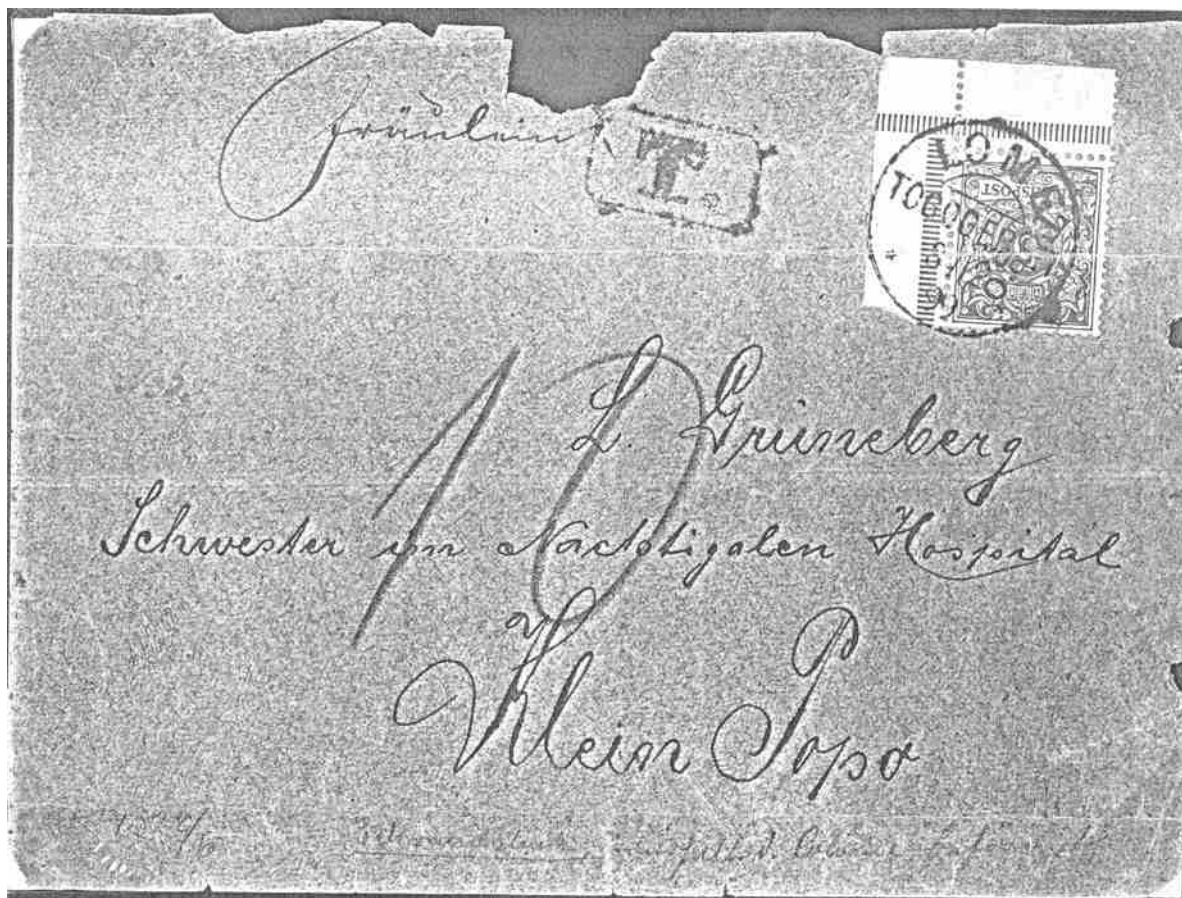 Fräulein
T.
LOME
TOGOGEBIET
10
L. Grüneberg
Schwester im Nachtigalen Hospital
Klein Popo